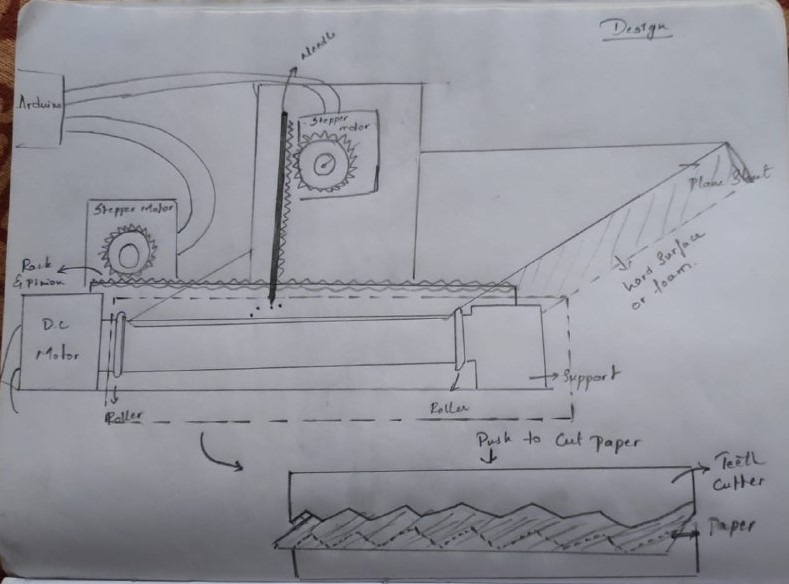 Design
Needle
Arduino
Stepper
motor
Plane Sheet
Stepper Motor
Rack
& pinion
Hard Surface
or foam.
D.C
Motor
Support
Roller
Roller
Push to Cut Paper
Teeth
Cutter
Paper